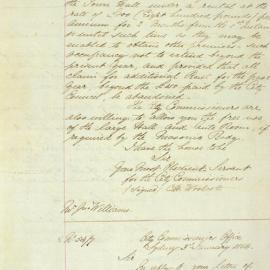 the Town Hall under a rental at the
rate of £800 (Eight hundred pounds) per
annum for
or until such time as they may be
enabled to obtain other premises, such
occupancy not to extend beyond the
present year, and provided that all
claim for additional Rent for the past
year beyond the £800 paid by the City
Council, be abandoned.
The City Commissioners are
also willing to allow you the free use
of the Large Hall and Ante Room, if
required by the Masonic Body.
I have the honor to be
Sir
Your most Obedient Servant
for the City Commissioners
(signed) C. H. Woolcott
Mr. Jno Williams.
City Commissioners Office
Sydney 3rd January 1854.
Sir
In reply to your letter of